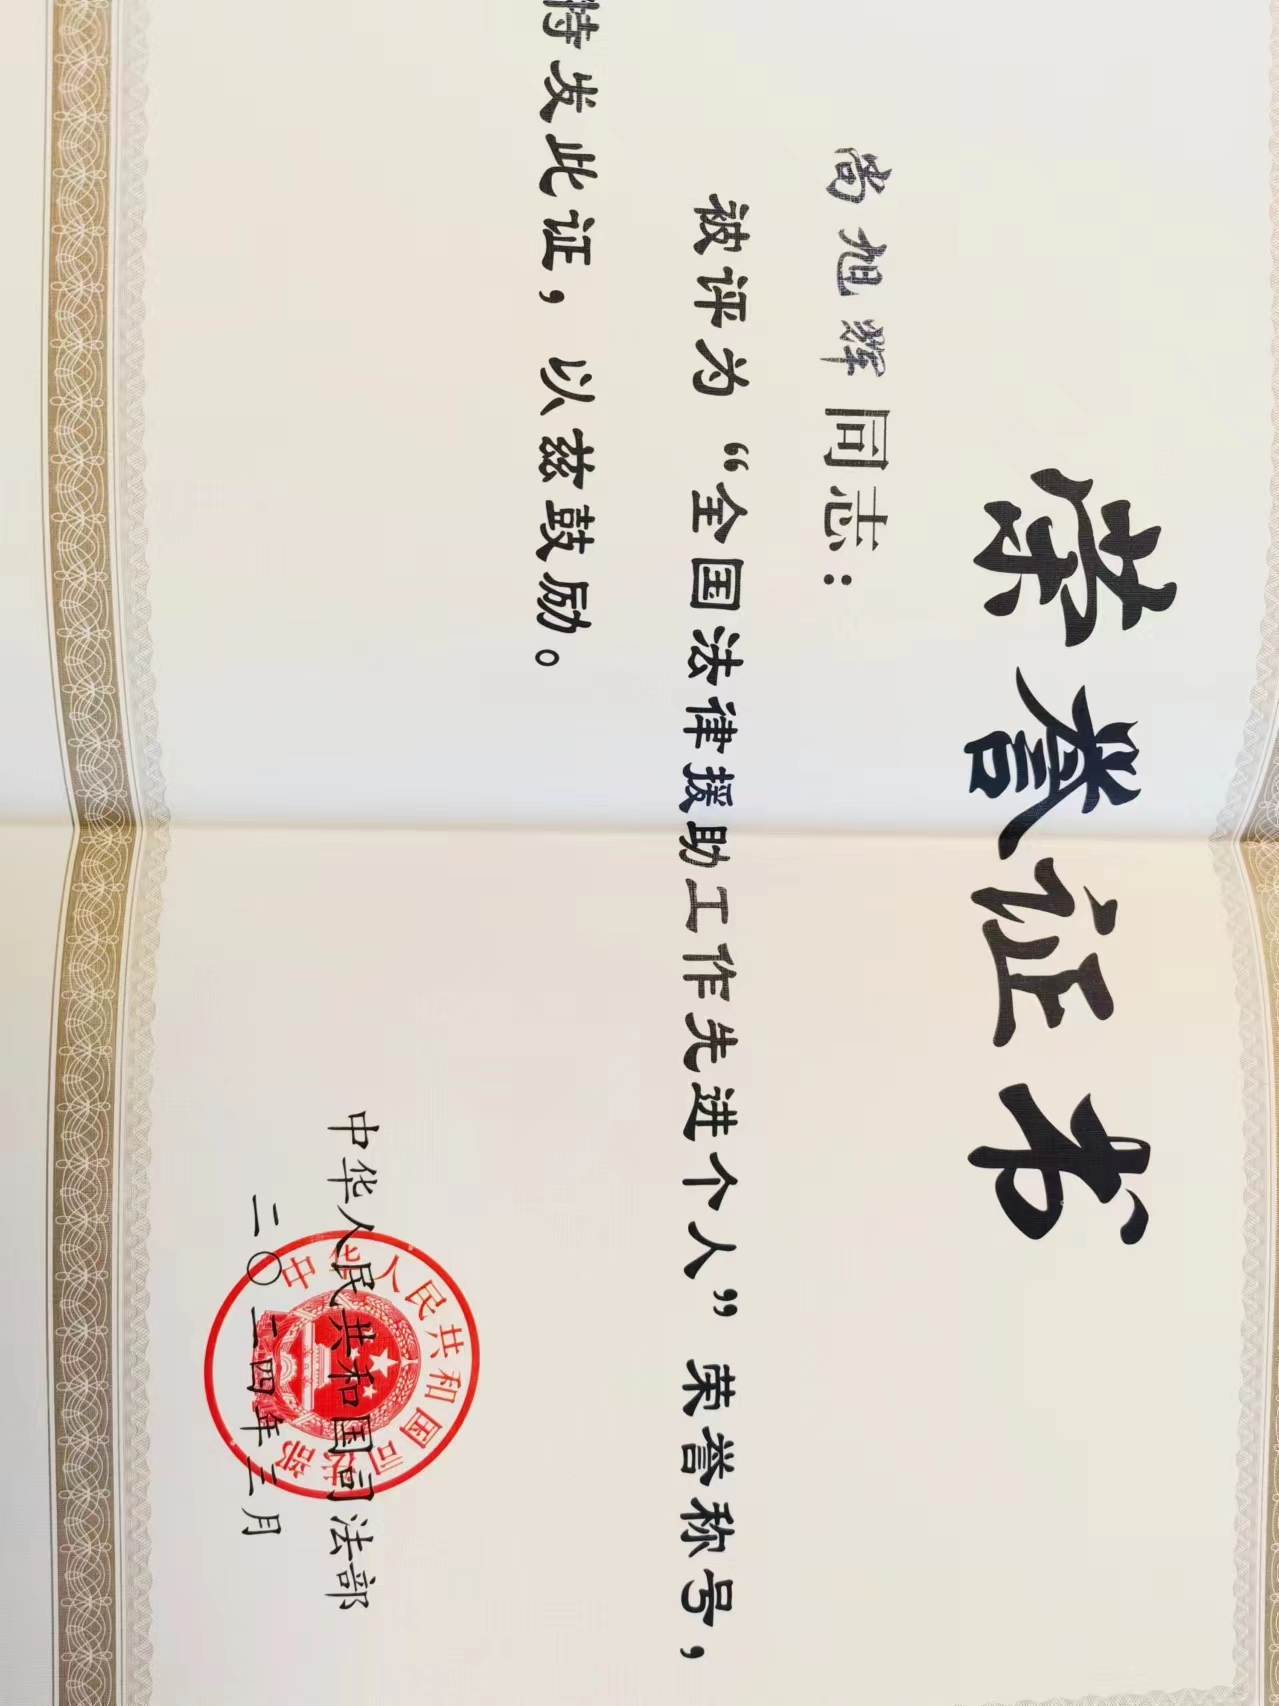 荣誉证书
尚旭辉同志：
被评为“全国法律援助工作先进个人”荣誉称号，
特发此证，以兹鼓励。
中华人民共和国司法部
二〇二四年三月
中华人民共和国司法部